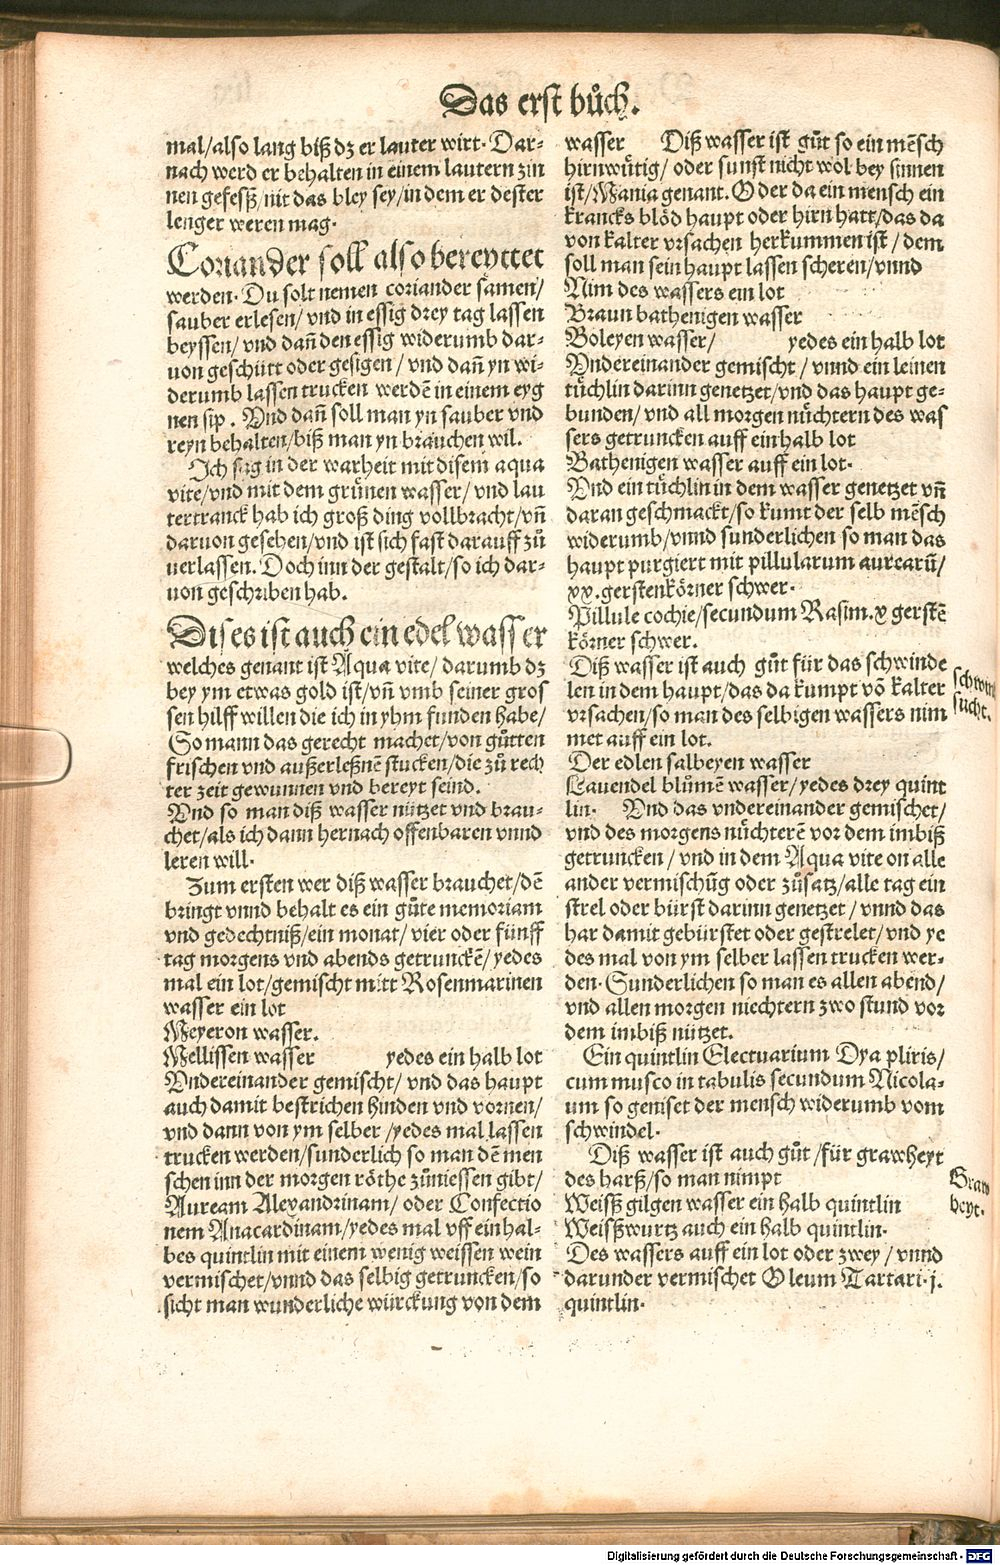 Das erst bůch.
mal/also lang biß dz er lauter wirt. Dar-
nach werd er behalten in einem lautern zin
nen gefesß/nit das bley sey/in dem er dester
lenger weren mag.
Coriander soll also bereyttet
werden. Du solt nemen coriander samen/
sauber erlesen/ vnd in essig drey tag lassen
beyssen/ vnd dañ den essig widerumb dar-
uon geschütt oder gesigen/ vnd dañ yn wi-
derumb lassen trucken werdẽ in einem eyg
nen sip. Vnd dañ soll man yn sauber vnd
reyn behalten/biß man yn brauchen wil.
Ich sag in der warheit mit disem aqua
vite/vnd mit dem grünen wasser/ vnd lau
tertranck hab ich groß ding vollbracht/vñ
daruon gesehen/vnd ist sich fast darauff zů
verlassen. Doch inn der gestalt/so ich dar-
uon geschriben hab.
Dises ist auch ein edel wasser
welches genant ist Aqua vite/ darumb dz
bey ym etwas gold ist/vñ vmb seiner gros
sen hilff willen die ich in yhm funden habe/
So mann das gerecht machet/von gůtten
frischen vnd außerleßnẽ stucken/die zů rech
ter zeit gewunnen vnd bereyt seind.
Vnd so man diß wasser nützet vnd brau-
chet/als ich dann hernach offenbaren vnnd
leren will.
Zum ersten wer diß wasser brauchet/dẽ
bringt vnnd behalt es ein gůte memoriam
vnd gedechtniß/ein monat/ vier oder fünff
tag morgens vnd abends getrunckẽ/ yedes
mal ein lot/gemischt mitt Rosenmarinen
wasser ein lot
Meyeron wasser.
Mellissen wasser yedes ein halb lot
Vndereinander gemischt/ vnd das haupt
auch damit bestrichen hinden vnd vornen/
vnd dann von ym selber /yedes mal lassen
trucken werden/sunderlich so man dẽ men
schen inn der morgen röthe zůniessen gibt/
Auream Alexandrinam/ oder Confectio
nem Anacardinam/yedes mal vff ein hal-
bes quintlin mit einem wenig weissen wein
vermischet/vnnd das selbig getruncken/so
sicht man wunderliche würckung von dem
wasser Diß wasser ist gůt so ein mẽsch
hirnwütig/ oder sunst nicht wol bey sinnen
ist/Mania genant. Oder da ein mensch ein
krancks blöd haupt oder hirn hatt/das da
von kalter vrsachen herkummen ist / dem
soll man sein haupt lassen scheren/vnnd
Nim des wassers ein lot
Braun bathenigen wasser
Boleyen wasser/ yedes ein halb lot
Vndereinander gemischt / vnnd ein leinen
tüchlin darinn genetzet/vnd das haupt ge-
bunden/ vnd all morgen nüchtern des was
sers getruncken auff ein halb lot
Bathenigen wasser auff ein lot.
Vnd ein tüchlin in dem wasser genetzet vñ
daran geschmackt/so kumt der selb mẽsch
widerumb/vnnd sunderlichen so man das
haupt purgiert mit pillularum aurearũ/
xx. gerstenkörner schwer.
Pillule cochie/secundum Rasim.x gerstẽ
körner schwer.
Diß wasser ist auch gůt für das schwinde
len in dem haupt/das da kumpt võ kalter
vrsachen/so man des selbigen wassers nim
met auff ein lot.
Der edlen salbeyen wasser
Lauendel blůmẽ wasser/yedes drey quint
lin. Vnd das vndereinander gemischet/
vnd des morgens nüchterẽ vor dem imbiß
getruncken / vnd in dem Aqua vite on alle
ander vermischũg oder zůsatz/alle tag ein
strel oder bürst darinn genetzet / vnnd das
har damit gebürstet oder gestrelet/vnd ye
des mal von ym selber lassen trucken wer-
den. Sunderlichen so man es allen abend/
vnd allen morgen niechtern zwo stund vor
dem imbiß nützet.
Ein quintlin Electuarium Dya pliris/
cum musco in tabulis secundum Nicola-
um so geniset der mensch widerumb vom
schwindel.
Diß wasser ist auch gůt /für grawheyt
des harß/so man nimpt
Weisß gilgen wasser ein halb quintlin
Weisßwurtz auch ein halb quintlin.
Des wassers auff ein lot oder zwey / vnnd
darunder vermischet Oleum Tartari.j.
quintlin.
sucht.
heyt.
Digitalisierung gefördert durch die Deutsche Forschungsgemeinschaft - DFG